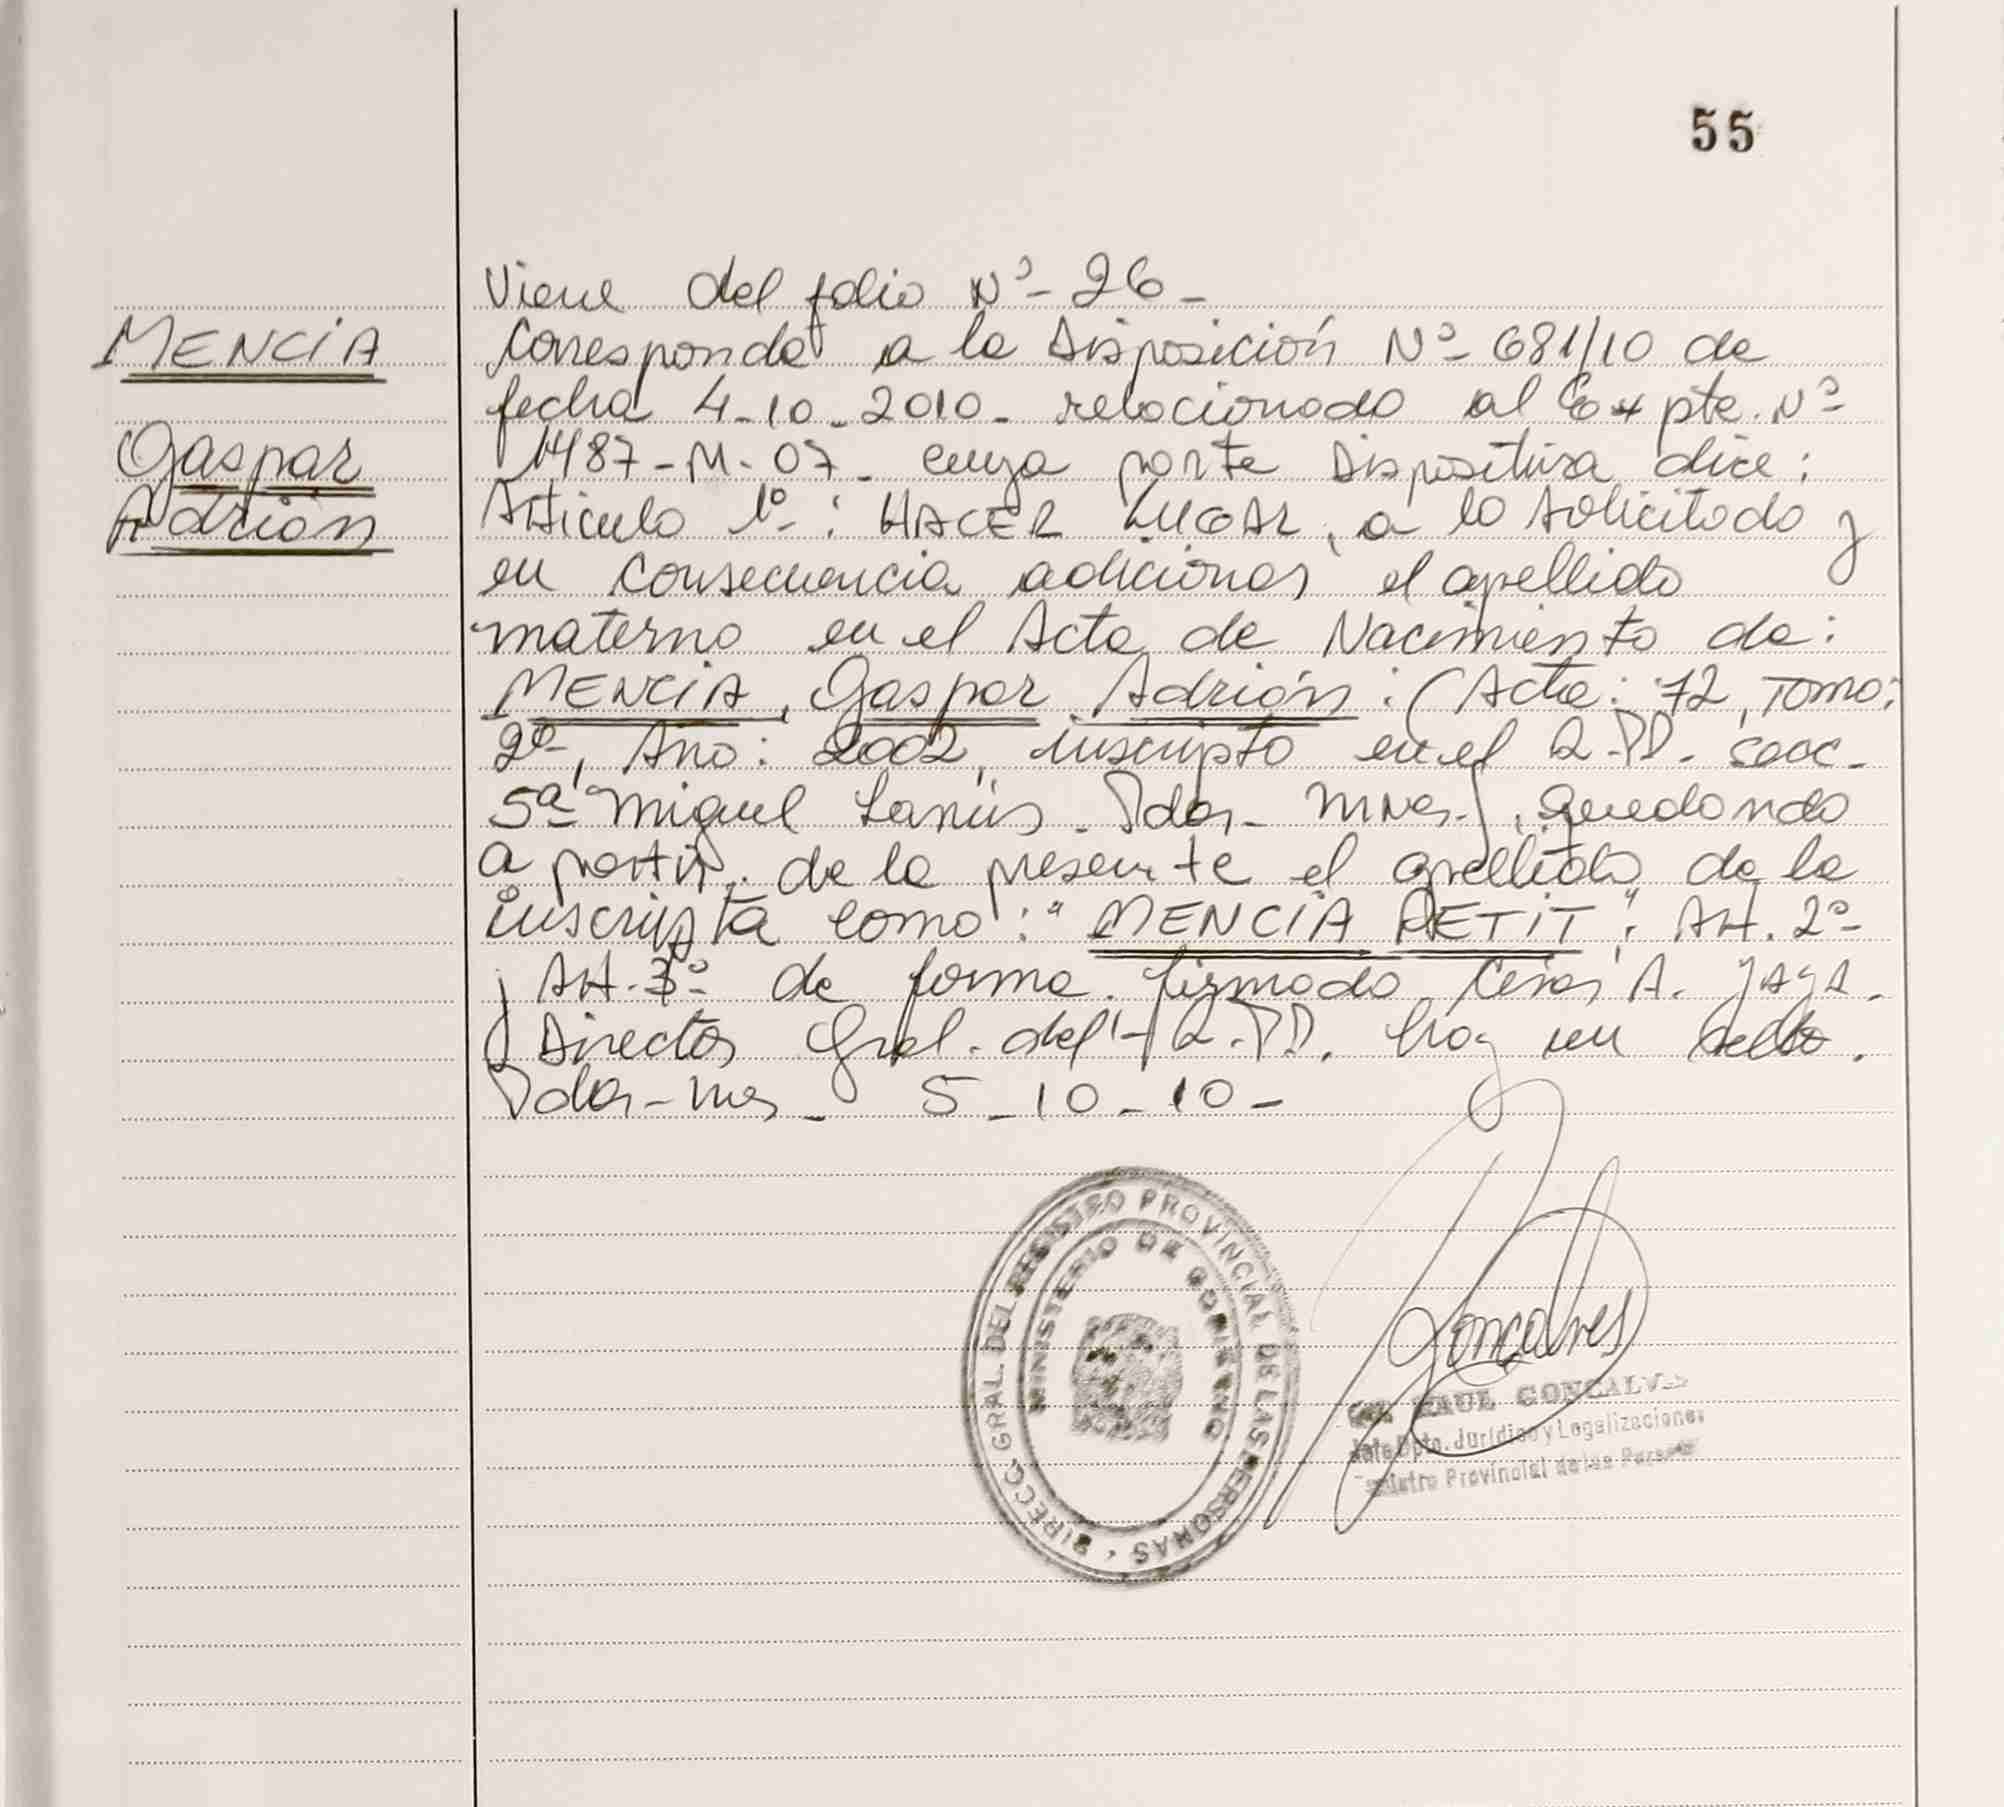 55
MENCIA
Gaspar
Adrián
Viene del folio Nº- 26-
Corresponde a la Disposición Nº- 681/10 de
fecha 4-10-2010- relacionado al Expte. Nº-
1487-M-07- cuya parte Dispositiva dice:
Articulo 1º-: HACER LUGAR, a lo solicitado y
en consecuencia adicionar el apellido
materno en el Acta de Nacimiento de:
MENCIA, Gaspar Adrián: (Acta: 72, Tomo:
2º-, Año: 2002, inscripto en el R.PP. Secc.
5ª- Miguel Lanús. Pdas- Mnes.), quedando
a partir de la presente el apellido de la
inscripta como: "MENCIA PETIT". Art. 2º-
y Art. 3º- de forma. firmado César A. JAJA.
Director Gral. del R.PP. hay un sello.
Pdas-Mnes- 5-10-10-
DIRECC. GRAL. DEL REGISTRO PROVINCIAL DE LAS PERSONAS
MINISTERIO DE GOBIERNO
Goncalves
RAUL GONCALVES
Jefe Dpto. Jurídico y Legalizaciones
Registro Provincial de las Personas